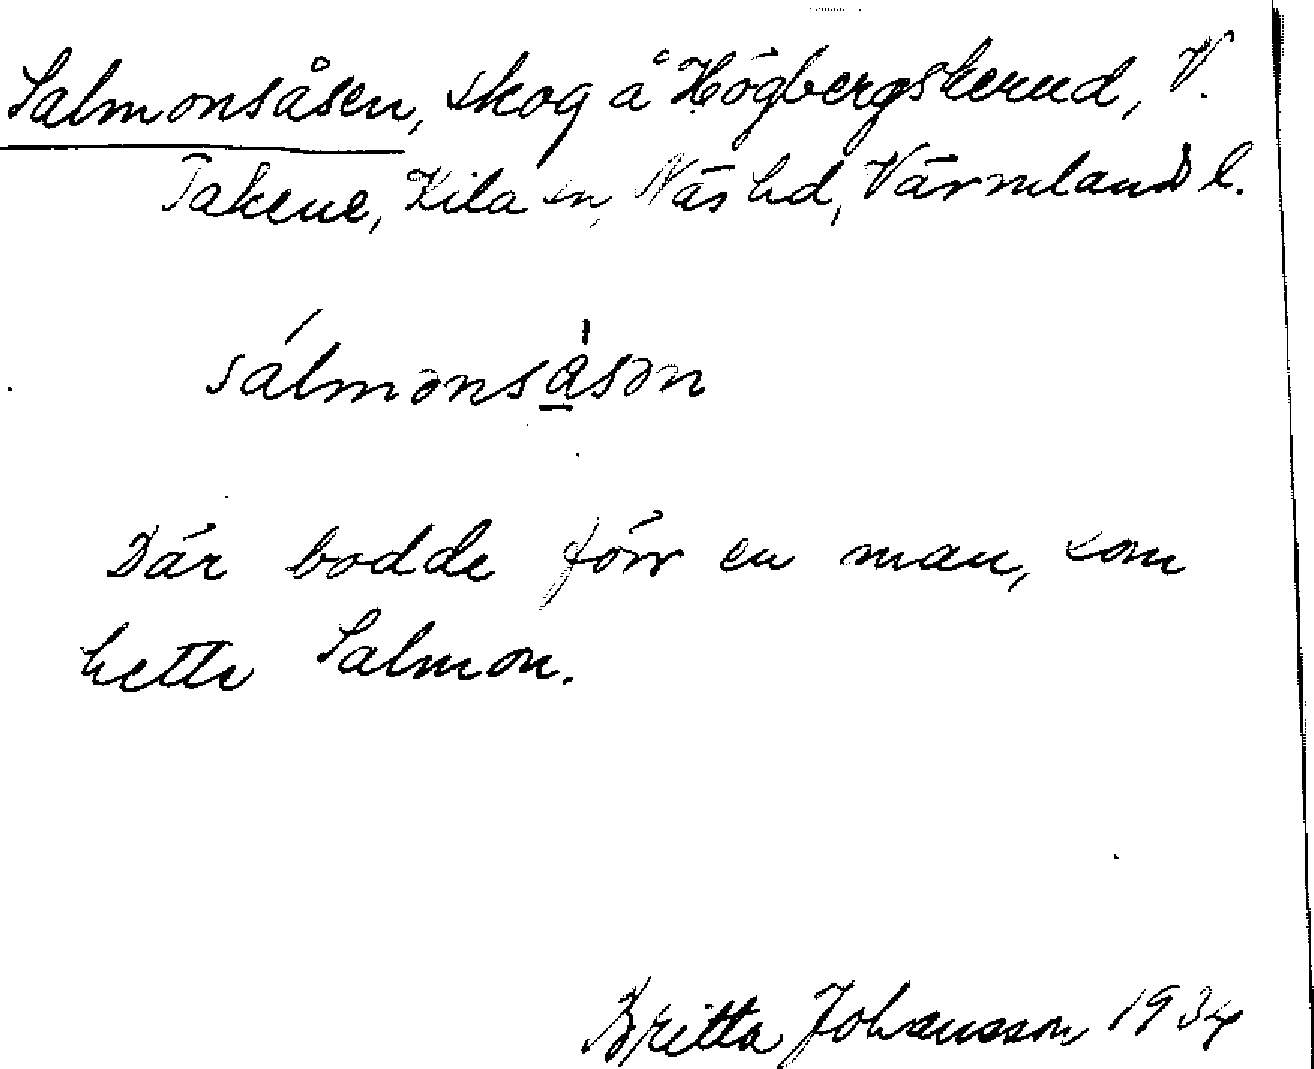 Salmonsåsen, skog å Högbergskerud, V.
Takene, Kila sn, Näs hd, Värmlands l.
sálmənsåsən
Där bodde förr en man, som
hette Salmon.
Britta Johansson 1934